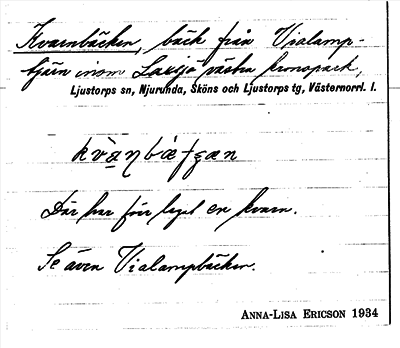 Kvarnbäcken, bäck från Vialamp-
tjärn inom Laxsjö västra kronopark,
Ljustorps sn, Njurunda, Sköns och Ljustorps tg, Västernorrl. l.
Där har förr legat en kvarn.
Se även Vialampbäcken.
ANNA-LISA ERICSON 1934